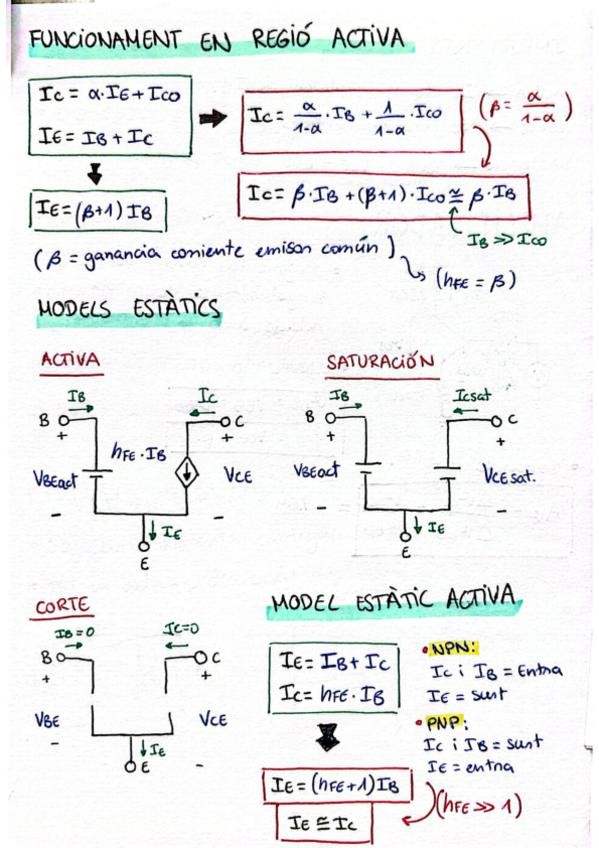 FUNCIONAMENT EN REGIÓ ACTIVA
Ic = α·IE + Ico
IE = IB + Ic
Ic = α/1-α · IB + 1/1-α · Ico
(β = α/1-α)
IE = (β+1) IB
Ic = β·IB + (β+1)·Ico ≅ β·IB
IB >> Ico
(β = ganancia corriente emisor común)
(hFE = β)
MODELS ESTÀTICS
ACTIVA
SATURACIÓN
IB
Ic
B
C
+
+
hFE·IB
VBEact
VCE
-
-
IE
E
IB
Icsat
B
C
+
+
VBEact
VCEsat.
-
-
IE
E
CORTE
IB=0
Ic=0
B
C
+
+
VBE
VCE
-
-
IE
E
MODEL ESTÀTIC ACTIVA
IE = IB + Ic
Ic = hFE·IB
IE = (hFE+1) IB
(hFE >> 1)
IE ≅ Ic
• NPN:
Ic i IB = Entra
IE = surt
• PNP:
Ic i IB = surt
IE = entra